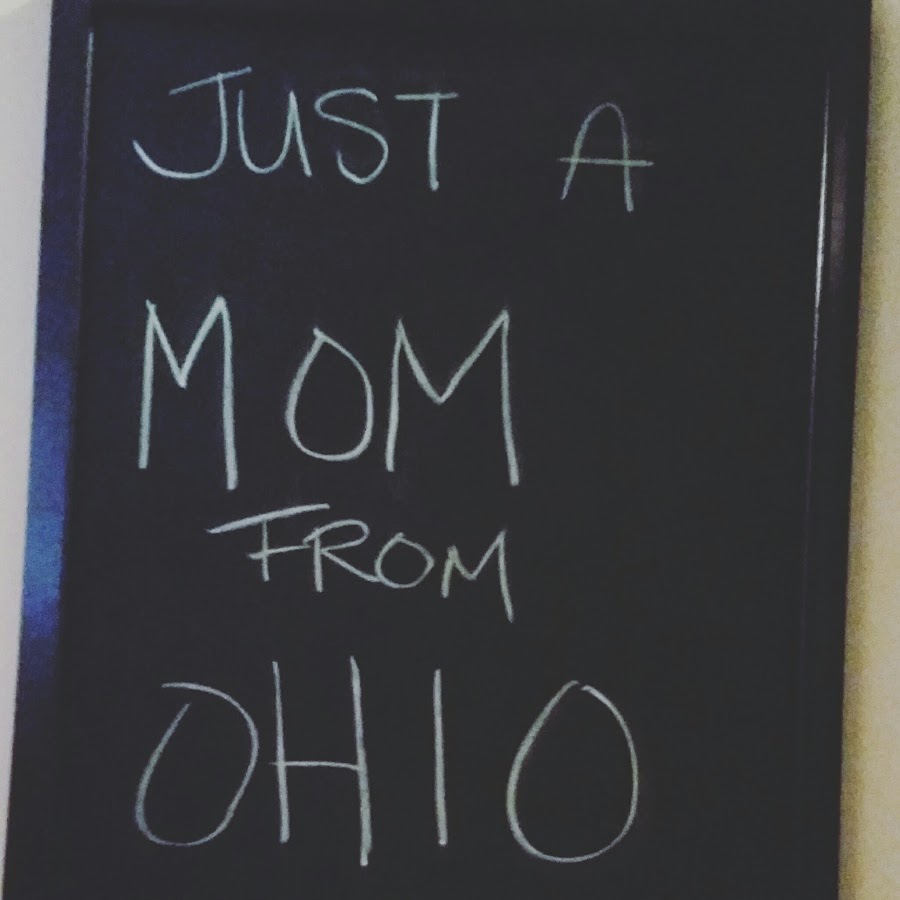 JUST A
MOM
FROM
OHIO